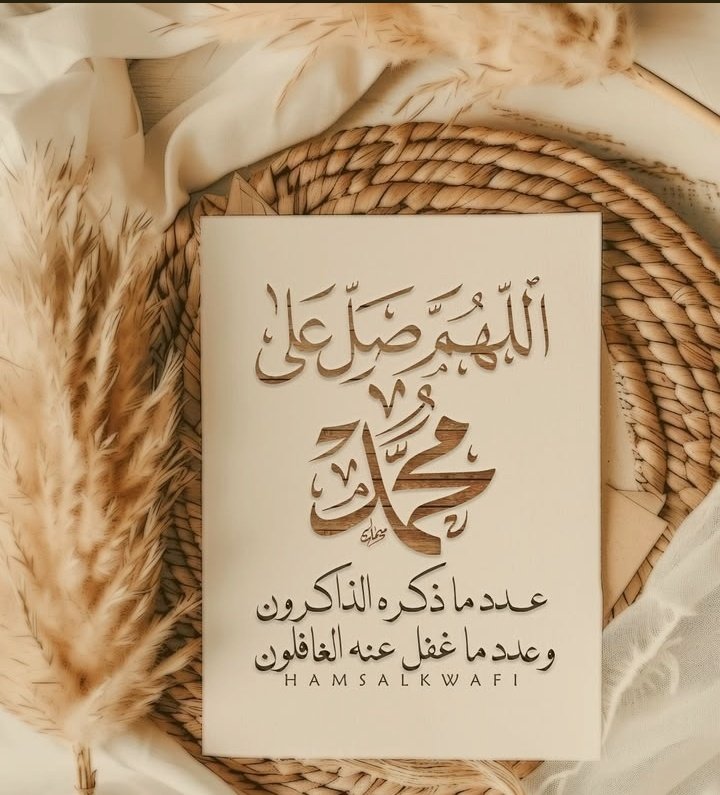 اللّهُمَّ صَلِّ عَلى
مُحمَّد
عدد ما ذكره الذاكرون
وعدد ما غفل عنه الغافلون
HAMSALKWAFI